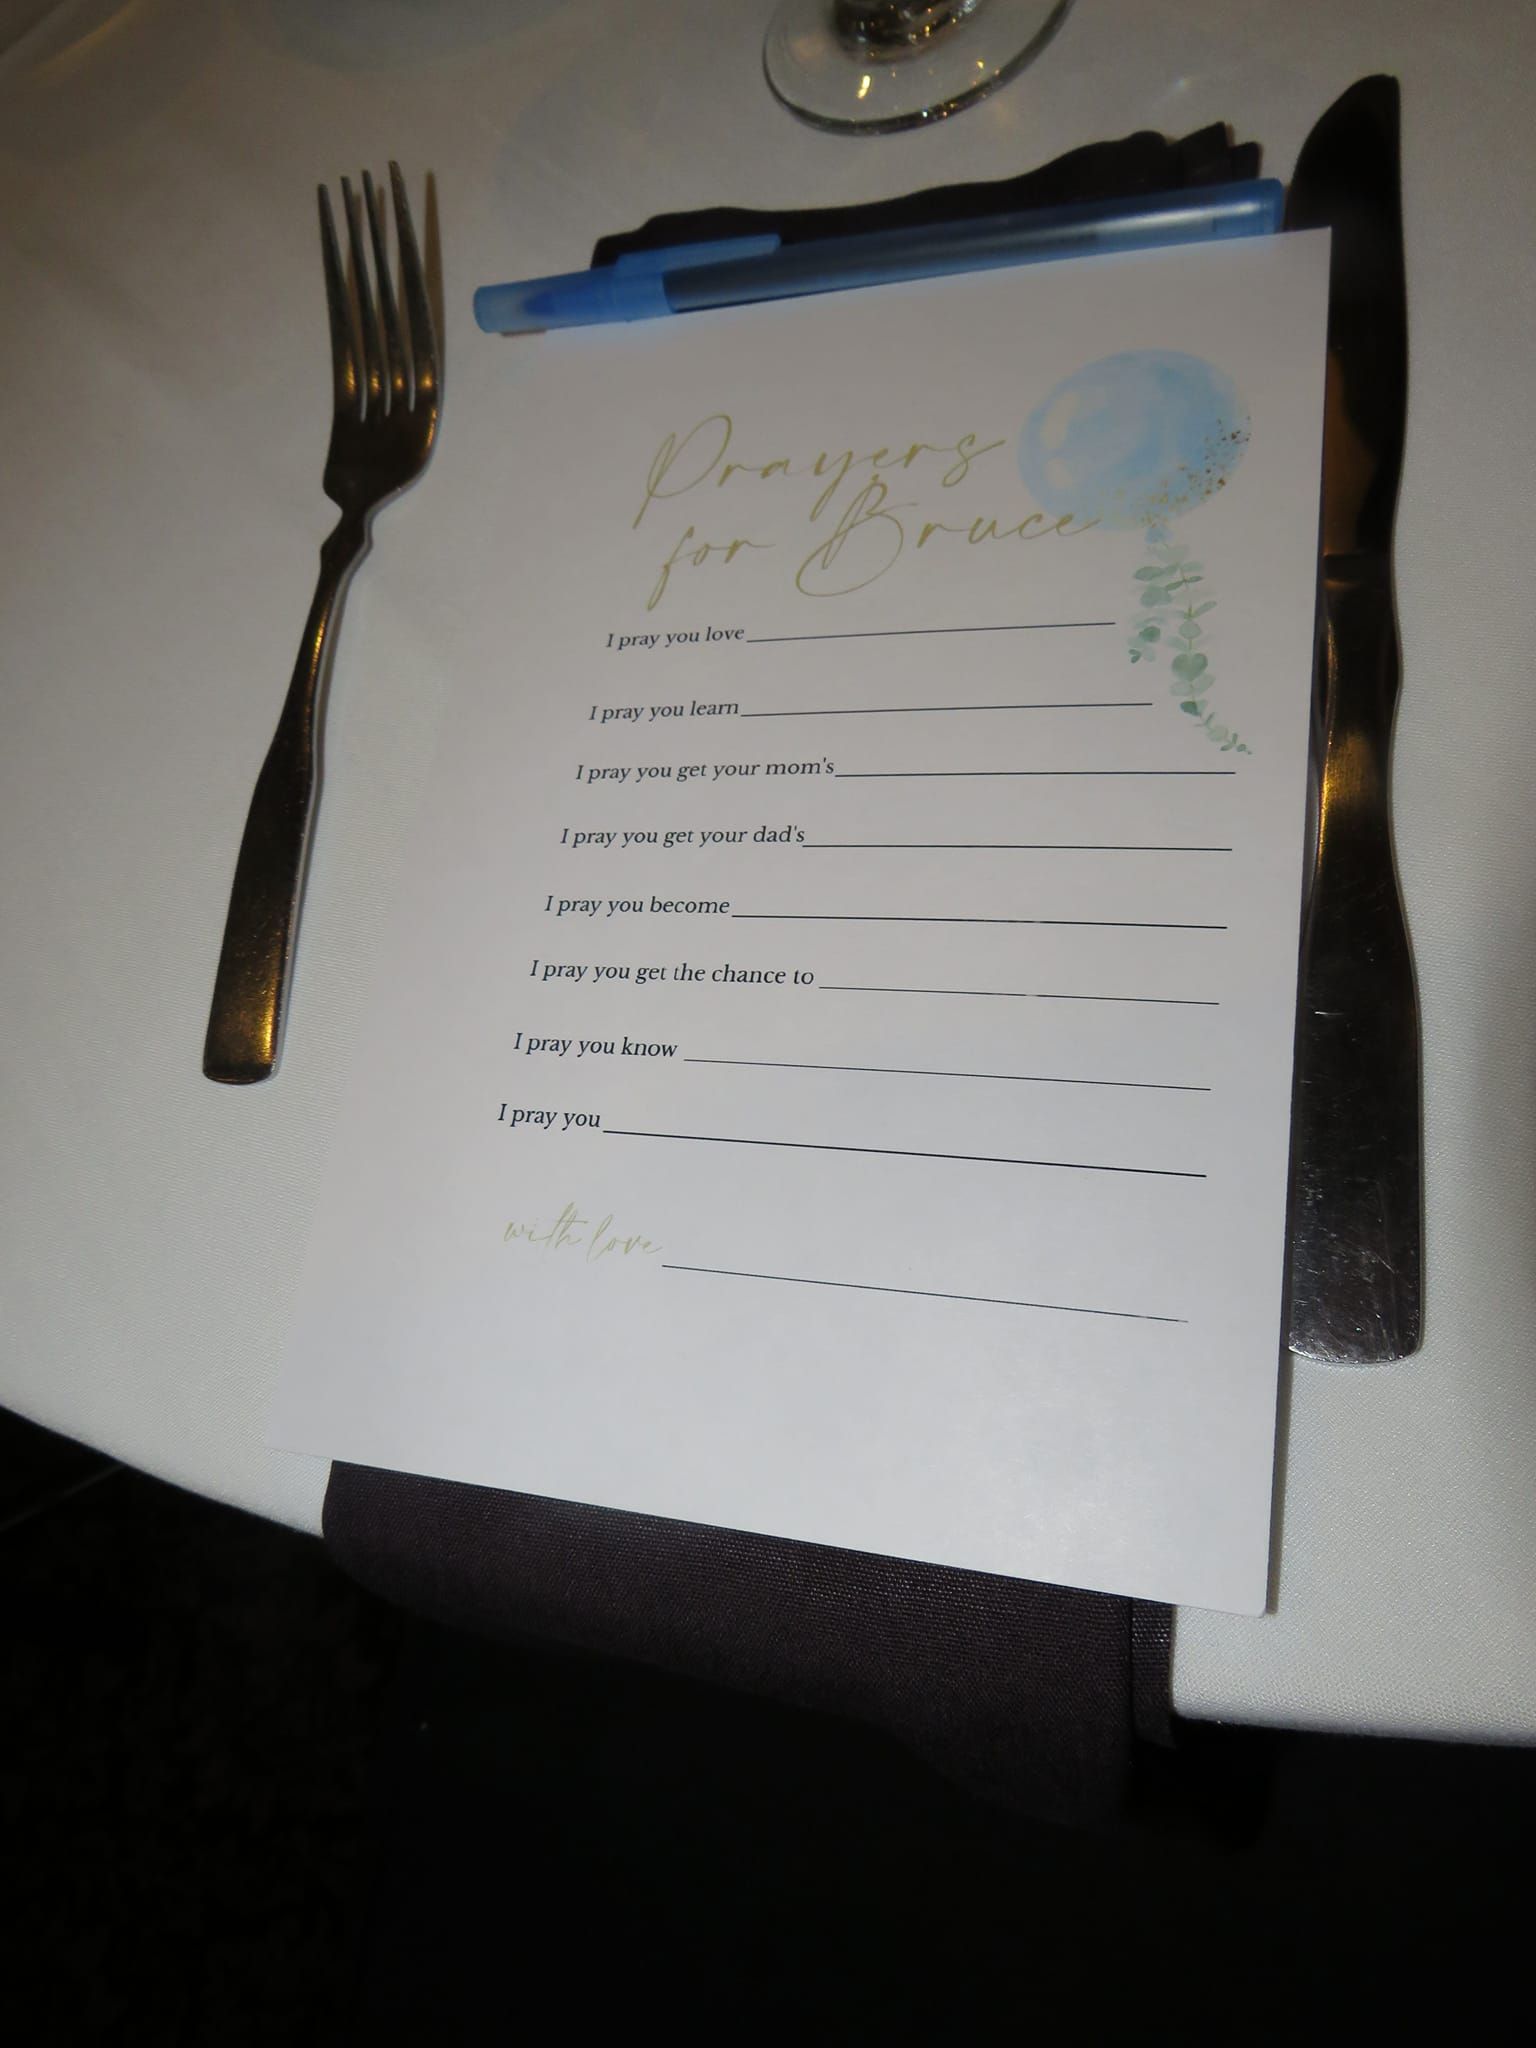 Prayers
for Bruce
I pray you love
I pray you learn
I pray you get your mom's
I pray you get your dad's
I pray you become
I pray you get the chance to
I pray you know
I pray you
with love